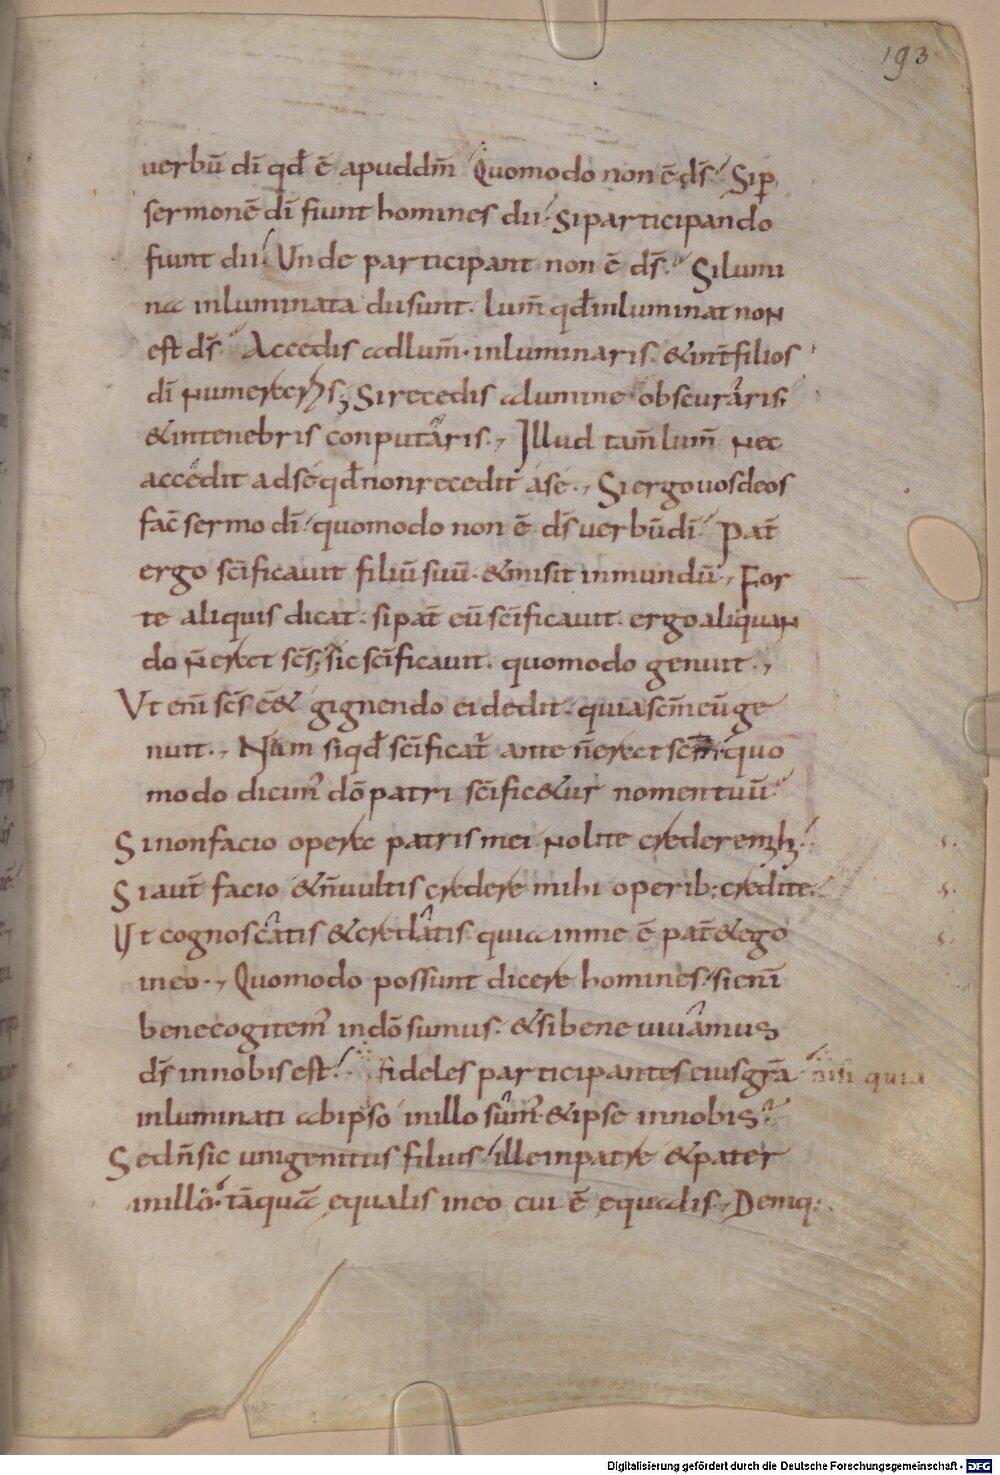 193
verbū dī qđ ē apuddm̄ Quomodo non ē ds̄ Sip
sermonē dī fiunt homines dii Siparticipando
fiunt dii Unde participant non ē ds̄. Silumi
na inluminata dii sunt. lum̄ qđ inluminat non
est ds̄ Accedis adlum̄. inluminaris &int̄ filios
dī Sirecedis alumine obscuraris
&intenebris conputaris., Illud tam̄ lum̄ nec
accedit adsē qđ nonrecedit asē., Siergo uosdeos
fac̄ sermo dī quomodo non ē ds̄ uerbūdī pat̄
ergo sc̄ificauit filiū suū. &misit inmundū., For
te aliquis dicat. sipat̄ eū sc̄ificauit. ergo aliquan
do n̄ erat sc̄s; sic sc̄ificauit. quomodo genuit.,
Ut enī sc̄s ē& gignendo eidedit. quiasc̄m eūge
nuit., Nam siqđ sc̄ificat̄ ante n̄ erat quo
modo dicim̄ dō patri sc̄ific&ur nomentuū
Sinonfacio opera patrismei nolite credere mihi.
Siaut̄ facio &n̄ uultis credere mihi operib; credite.
Ut cognoscatis &credatis quia inme ē pat̄ &ego
ineo., Quomodo possunt dicere homines. sienī
benecogitem̄ indō sumus. &sibene uiuamus
ds̄ innobisest. fideles participantes eiusgr̄a n̄isi quia
inluminati abipso inillo sum̄. &ipse innobis
Sedn̄sic unigenitus filius illeinpatre &pater
inillo. tāquā equalis ineo cui ē equalis., Demq;
Digitalisierung gefördert durch die Deutsche Forschungsgemeinschaft - DFG